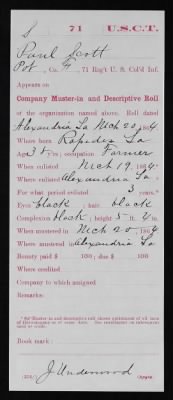 S 71 U.S.C.T.
Paul Scott
Pvt, Co. G, 71 Reg't U. S. Col'd Inf.
Appears on
Company Muster-in and Descriptive Roll
of the organization named above. Roll dated
Alexandria La Mch 20, 1864
Where born Rapides La
Age 35 y'rs; occupation Farmer
When enlisted Mch 19, 1864
Where enlisted Alexandria La
For what period enlisted 3 years.
Eyes black; hair black
Complexion black; height 5 ft. 4 in.
When mustered in Mch 20, 1864
Where mustered in Alexandria La
Bounty paid $ 100; due $ 100
Where credited
Company to which assigned
Remarks:
Book mark:
J Underwood
Copyist.